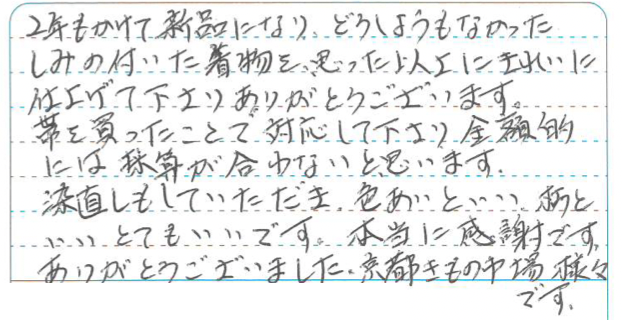 2年もかけて新品になり、どうしようもなかった
しみの付いた着物を、思った以上にきれいに
仕上げて下さりありがとうございます。
帯を買ったことで対応して下さり金額的
には採算が合わないと思います。
染直しもしていただき、色あいといい、柄と
いいとてもいいです。本当に感謝です。
ありがとうございました、京都きもの市場様々
です。